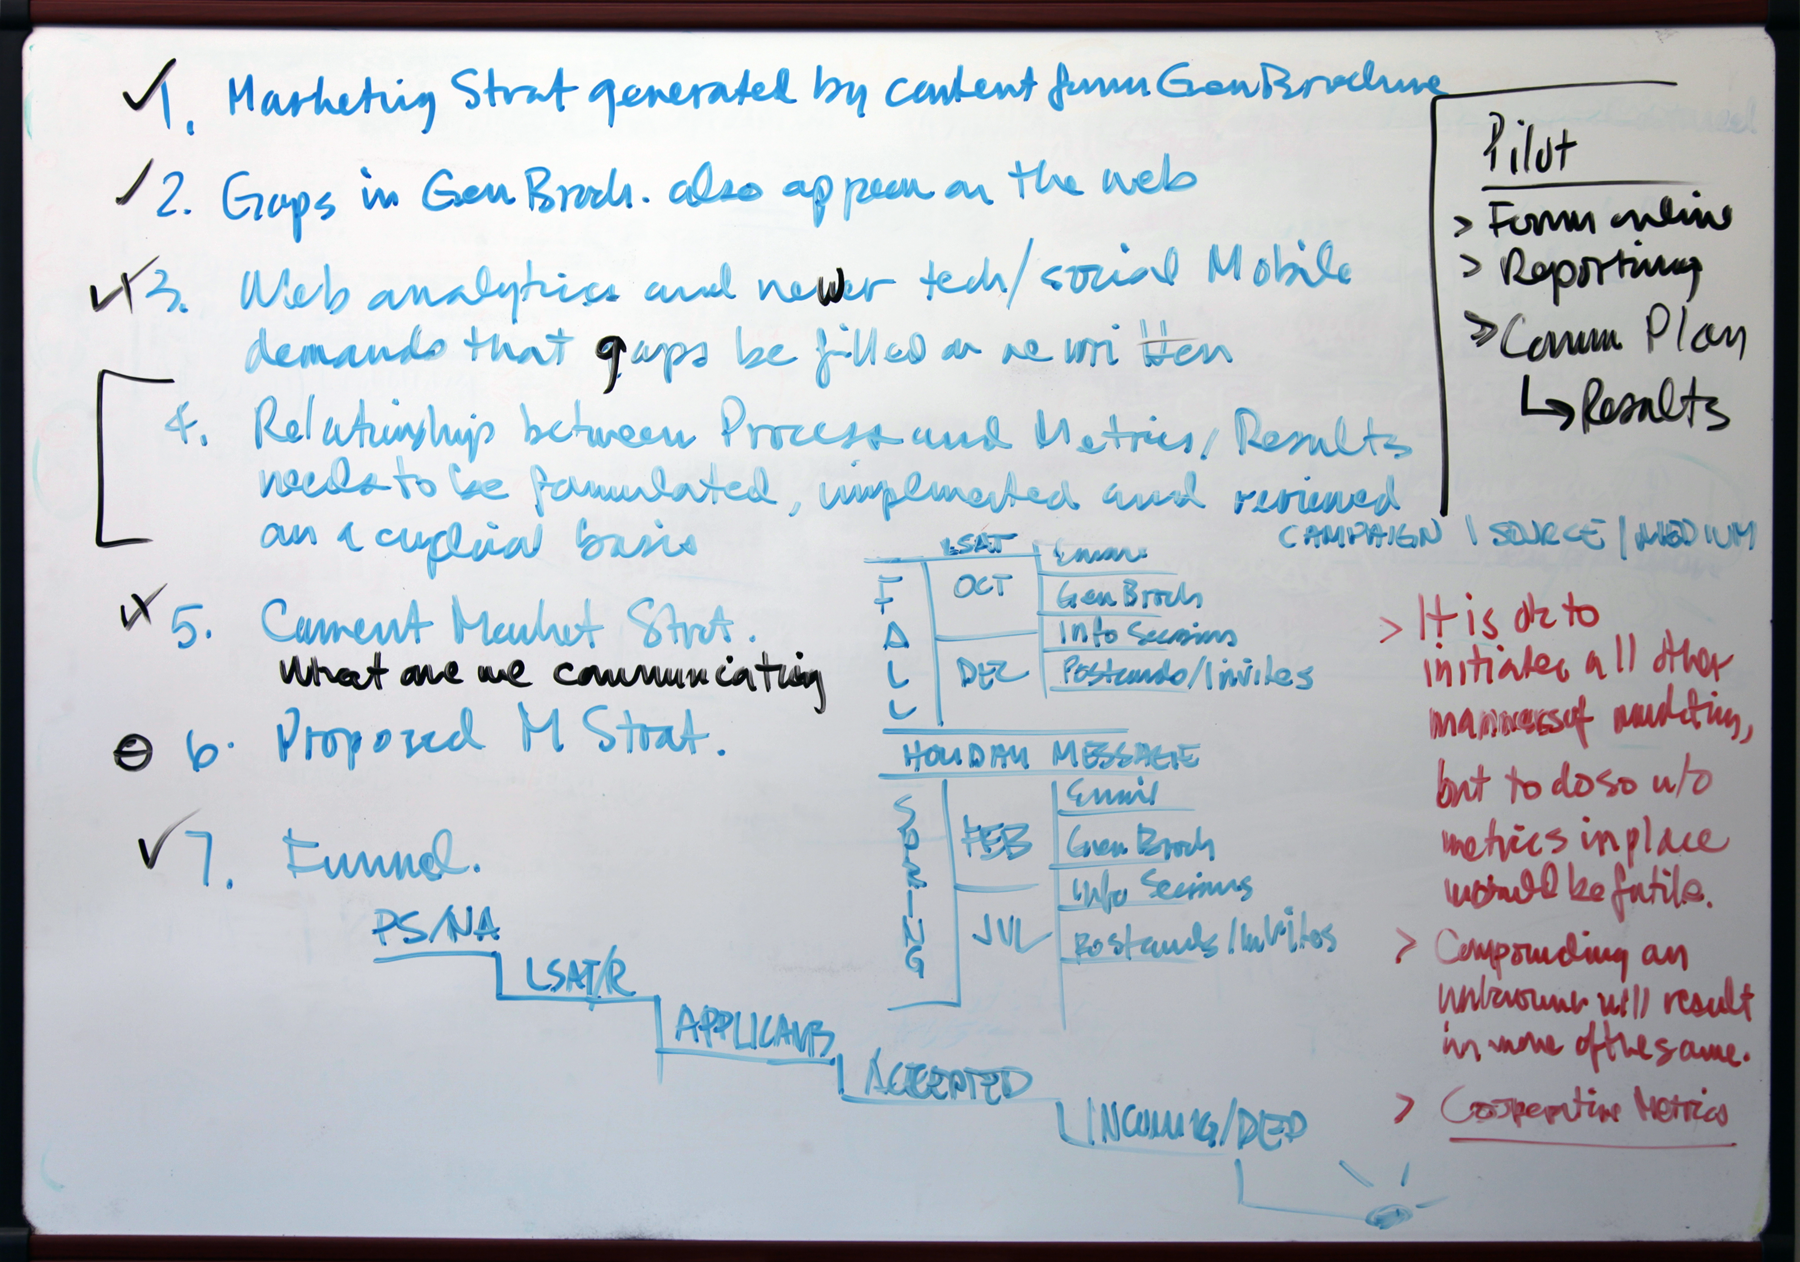 ✓ 1. Marketing Strat generated by content from GenBrochure
✓ 2. Gaps in Gen Broch. also appear on the web
3. Web analytics and newer tech/social Mobile
demands that gaps be filled or rewritten
4. Relationship between Process and Metrics/Results
needs to be formulated, implemented and reviewed
on a cyclical basis
5. Current Market Strat.
What are we communicating
6. Proposed M Strat.
✓ 7. Funnel.
PS/NA
LSAT/R
APPLICANTS
ACCEPTED
INCOMING/DEP
LSAT
FALL
OCT
DEC
Gen Broch
Info Sessions
Postcards/Invites
HOLIDAY MESSAGE
SPRING
FEB
JUL
Email
Gen Broch
Info Sessions
Postcards/Invites
Pilot
> Form online
> Reporting
> Comm Plan
↳ Results
CAMPAIGN / SOURCE / MEDIUM
> It is ok to
initiate all other
manners of marketing,
but to do so w/o
metrics in place
would be futile.
> Compounding an
unknown will result
in more of the same.
> Cooperative Metrics